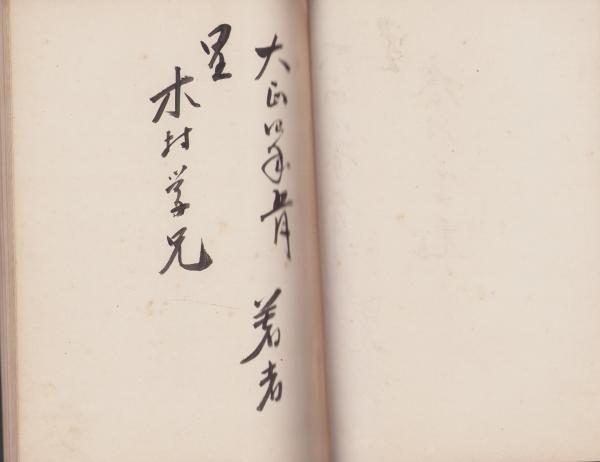 大正四年 著者
呈
木村学兄